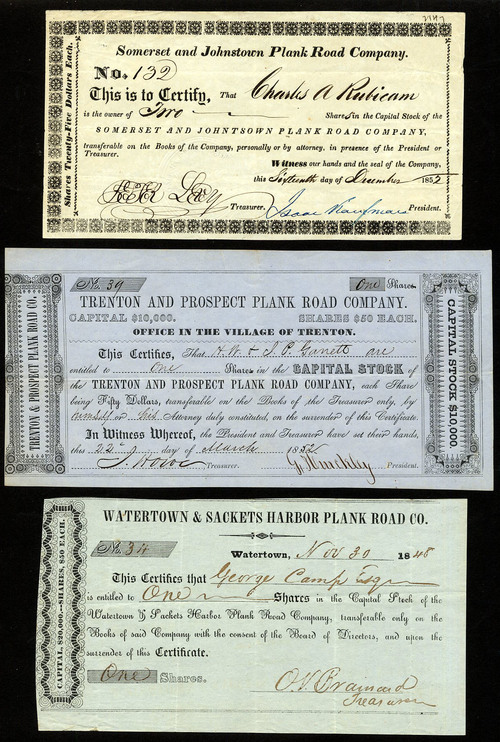 2147
Shares Twenty-Five Dollars Each.
Somerset and Johnstown Plank Road Company.
No. 132
This is to Certify, That Charles A Rubicam
is the owner of Two Shares in the Capital Stock of the
SOMERSET AND JOHNTSOWN PLANK ROAD COMPANY,
transferable on the Books of the Company, personally or by attorney, in presence of the President or
Treasurer.
Witness our hands and the seal of the Company,
this Sixteenth day of December 1852
Treasurer. Isaac Kaufman President.
TRENTON & PROSPECT PLANK ROAD CO.
No. 39 One Shares.
TRENTON AND PROSPECT PLANK ROAD COMPANY.
CAPITAL $10,000. SHARES $50 EACH.
OFFICE IN THE VILLAGE OF TRENTON.
This Certifies, That H. W. & J. P. Garrett are
entitled to One Shares in the CAPITAL STOCK of
the TRENTON AND PROSPECT PLANK ROAD COMPANY, each Share
being Fifty Dollars, transferable on the Books of the Treasurer only by
himself or his Attorney duly constituted, on the surrender of this Certificate.
In Witness Whereof, the President and Treasurer have set their hands,
this 22 day of March 1852
Treasurer. President.
CAPITAL STOCK $10,000
CAPITAL, $20,000.—SHARES, $50 EACH.
WATERTOWN & SACKETS HARBOR PLANK ROAD CO.
No. 34
Watertown, Nov 30 1848
This Certifies that George Camp Esq
is entitled to One Shares in the Capital Stock of the
Watertown & Sackets Harbor Plank Road Company, transferable only on the
Books of said Company with the consent of the Board of Directors, and upon the
surrender of this Certificate.
One Shares.
O. V. Brainard
Treasurer